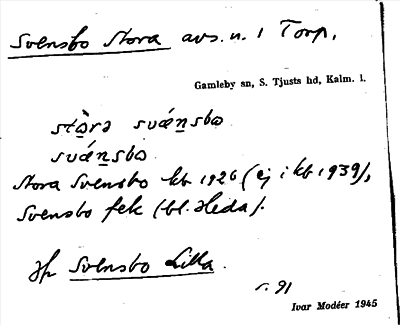 Svensbo Stora avs. n. 1 Torp.
Gamleby sn, S. Tjusts hd, Kalm. l.
stὰ̱rə svǽn̲sbω
svǽn̲sbω
Stora Svensbo kb 1926 (ej i kb 1939),
Svensbo fek (bl. Heda).
Jfr Svensbo Lilla.
s. 91
Ivar Modéer 1945